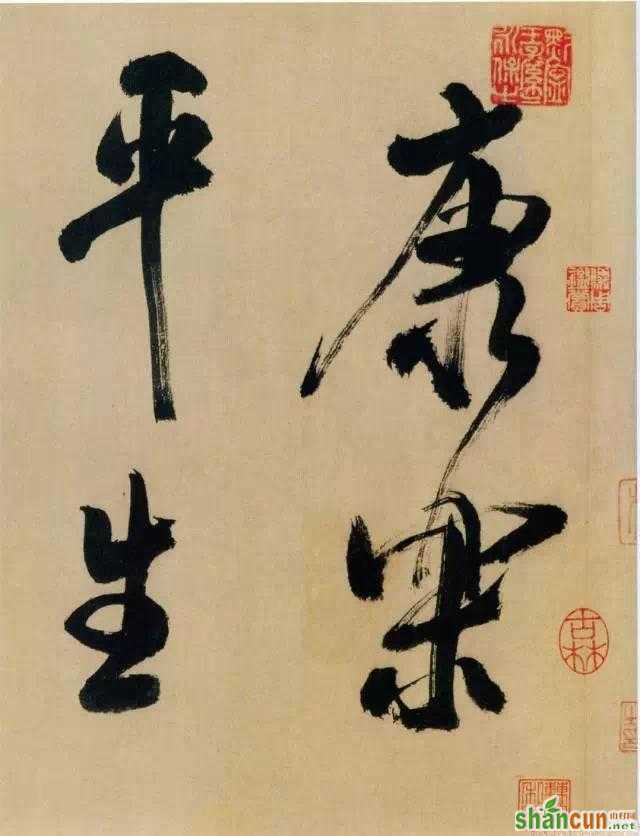 康樂
平生
shancun
.net